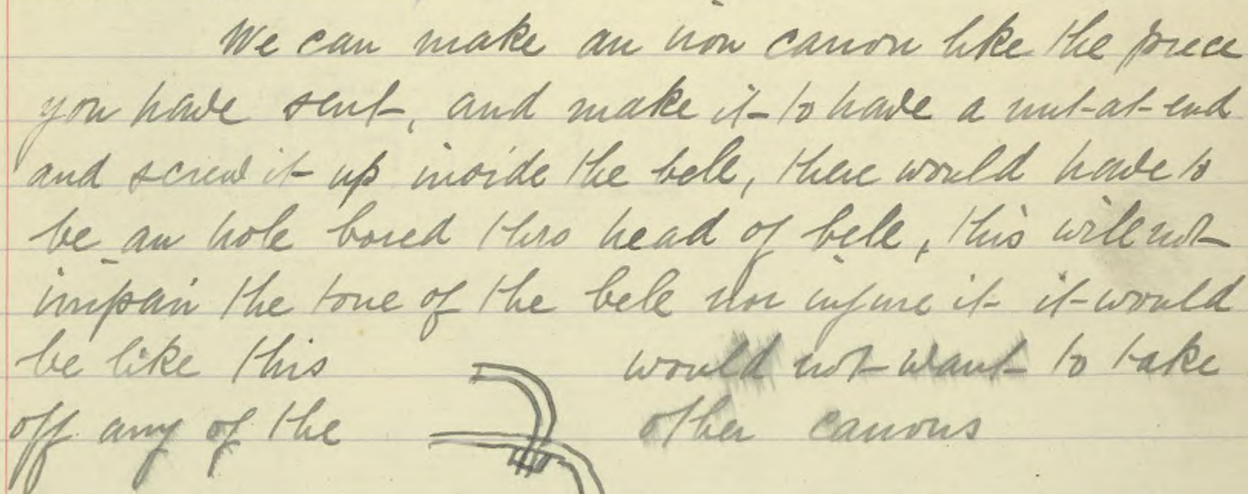 We can make an iron canon like the piece
you have sent, and make it to have a nut at end
and screw it up inside the bell, there would have to
be an hole bored thro head of bell, this will not
impair the tone of the bell nor injure it it would
be like this would not want to take
off any of the other canons